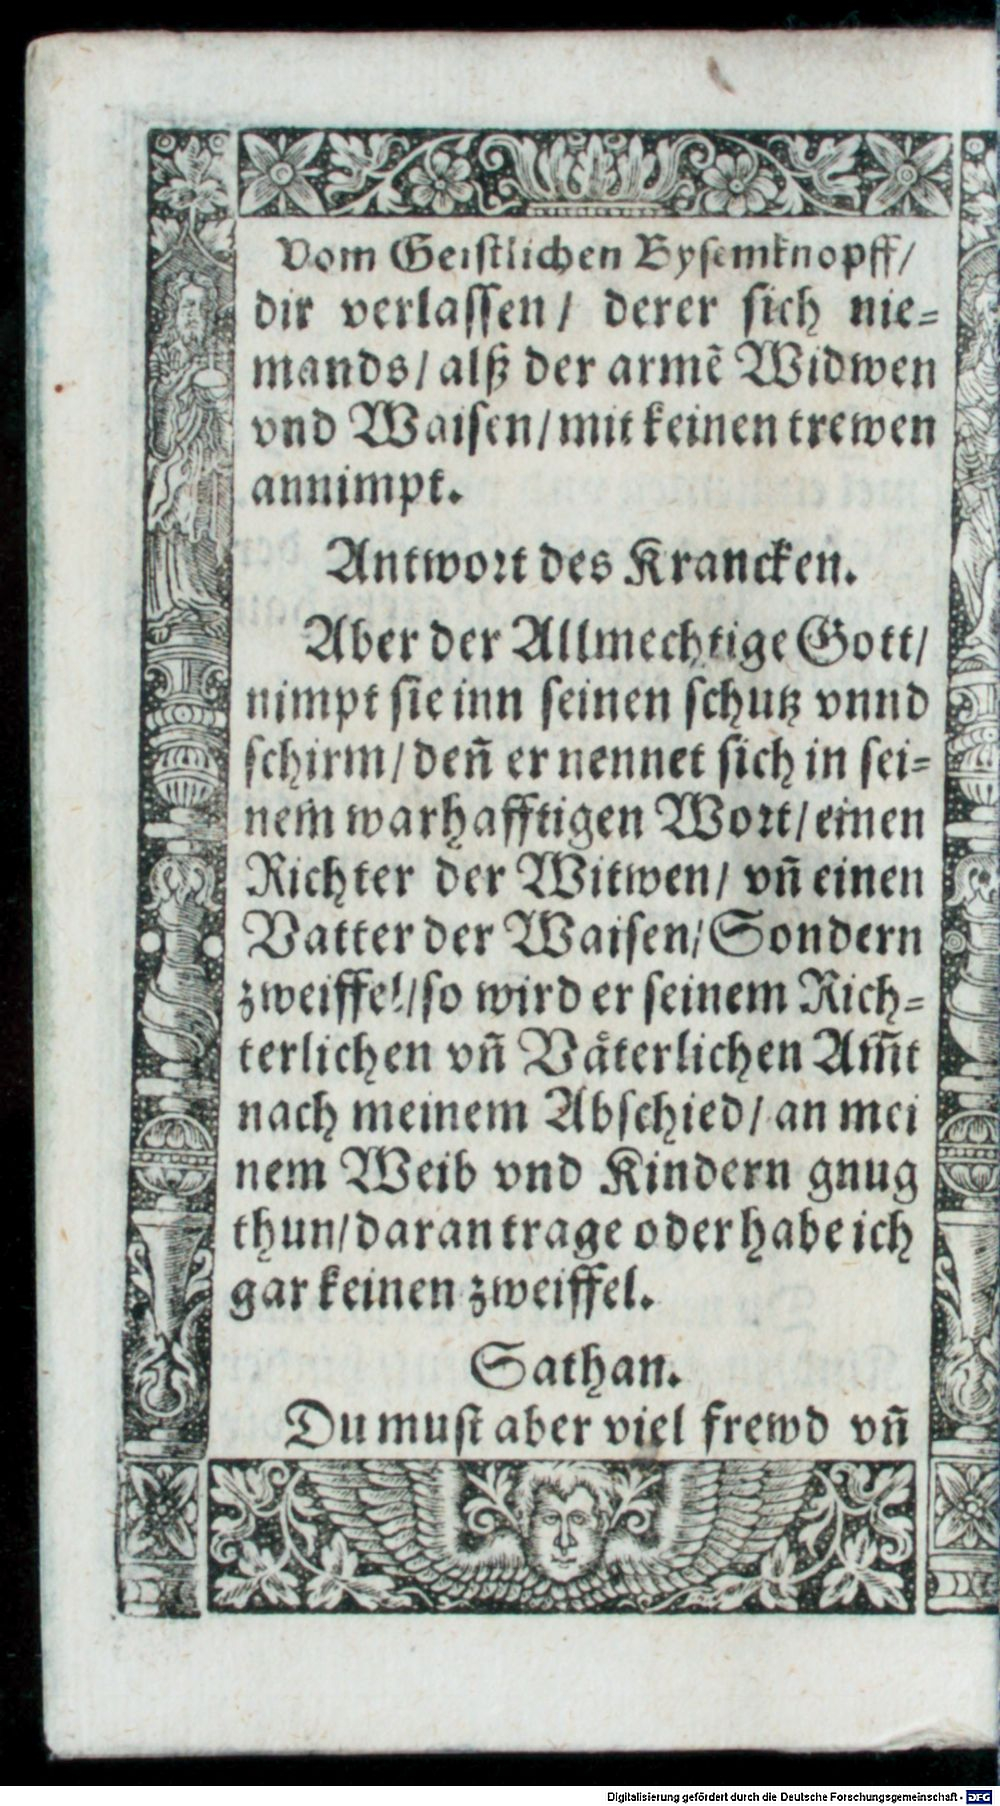 Vom Geistlichen Bysemknopff/
dir verlassen/ derer sich nie=
mands/ alß der armẽ Widwen
vnd Waisen/ mit keinen trewen
annimpt.
Antwort des Krancken.
Aber der Allmechtige Gott/
nimpt sie inn seinen schutz vnnd
schirm/ deñ er nennet sich in sei=
nem warhafftigen Wort/ einen
Richter der Witwen/ vñ einen
Vatter der Waisen/ Sondern
zweiffel/ so wird er seinem Rich=
terlichen vñ Väterlichen Am̃t
nach meinem Abschied/ an mei
nem Weib vnd Kindern gnug
thun/ daran trage oder habe ich
gar keinen zweiffel.
Sathan.
Du must aber viel frewd vñ
Digitalisierung gefördert durch die Deutsche Forschungsgemeinschaft - DFG